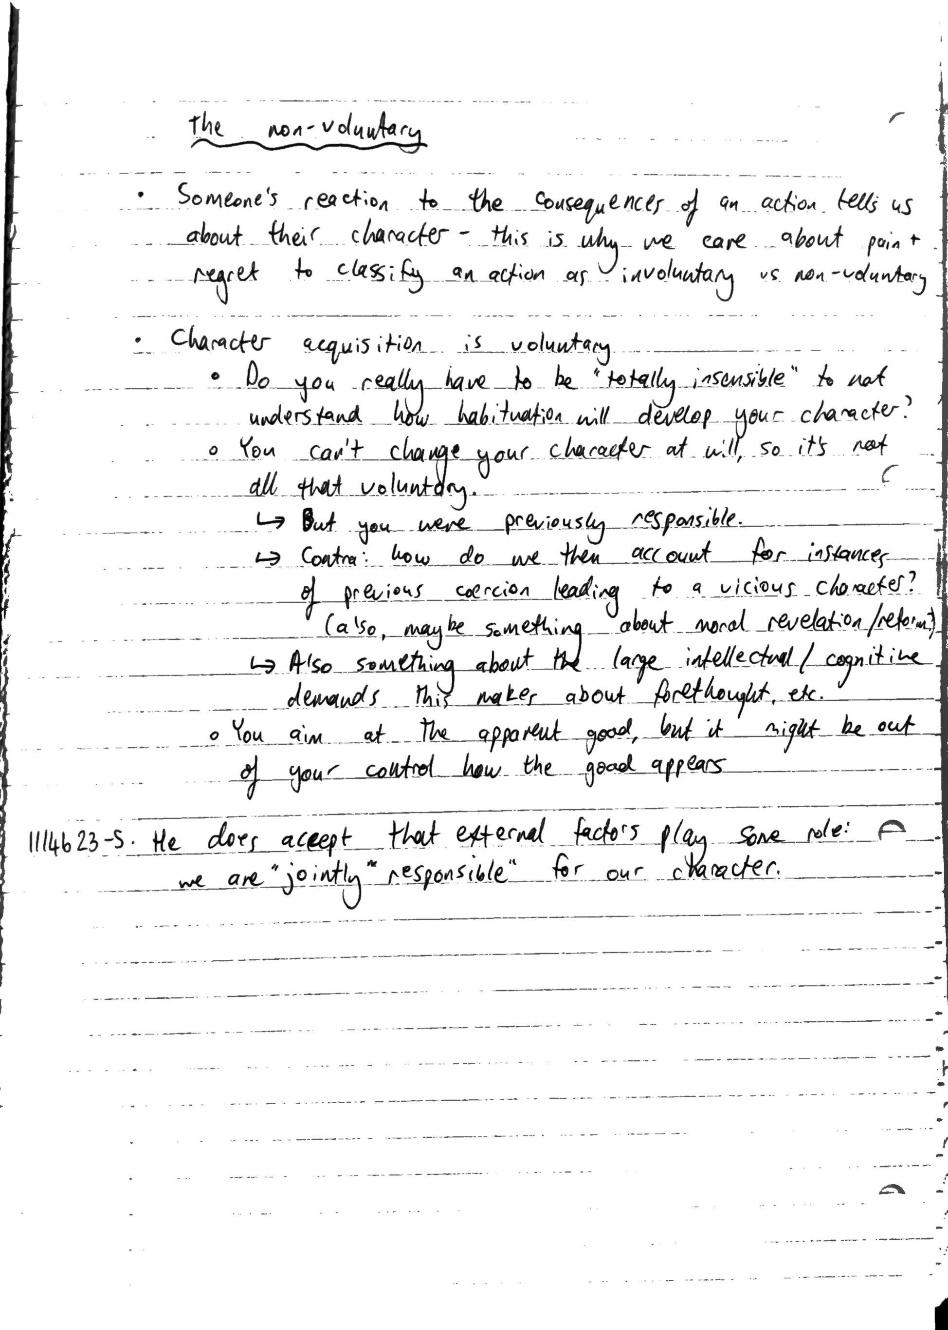 The non-voluntary
• Someone's reaction to the consequences of an action tells us
about their character - this is why we care about pain +
regret to classify an action as involuntary vs non-voluntary
• Character acquisition is voluntary
• Do you really have to be "totally insensible" to not
understand how habituation will develop your character?
• You can't change your character at will, so it's not
all that voluntary.
↳ But you were previously responsible.
↳ Contra: how do we then account for instances
of previous coercion leading to a vicious character?
(also, maybe something about moral revelation/reform)
↳ Also something about the large intellectual/cognitive
demands this makes about forethought, etc.
• You aim at the apparent good, but it might be out
of your control how the good appears
1114b23-5. He does accept that external factors play some role:
we are "jointly" responsible" for our character.